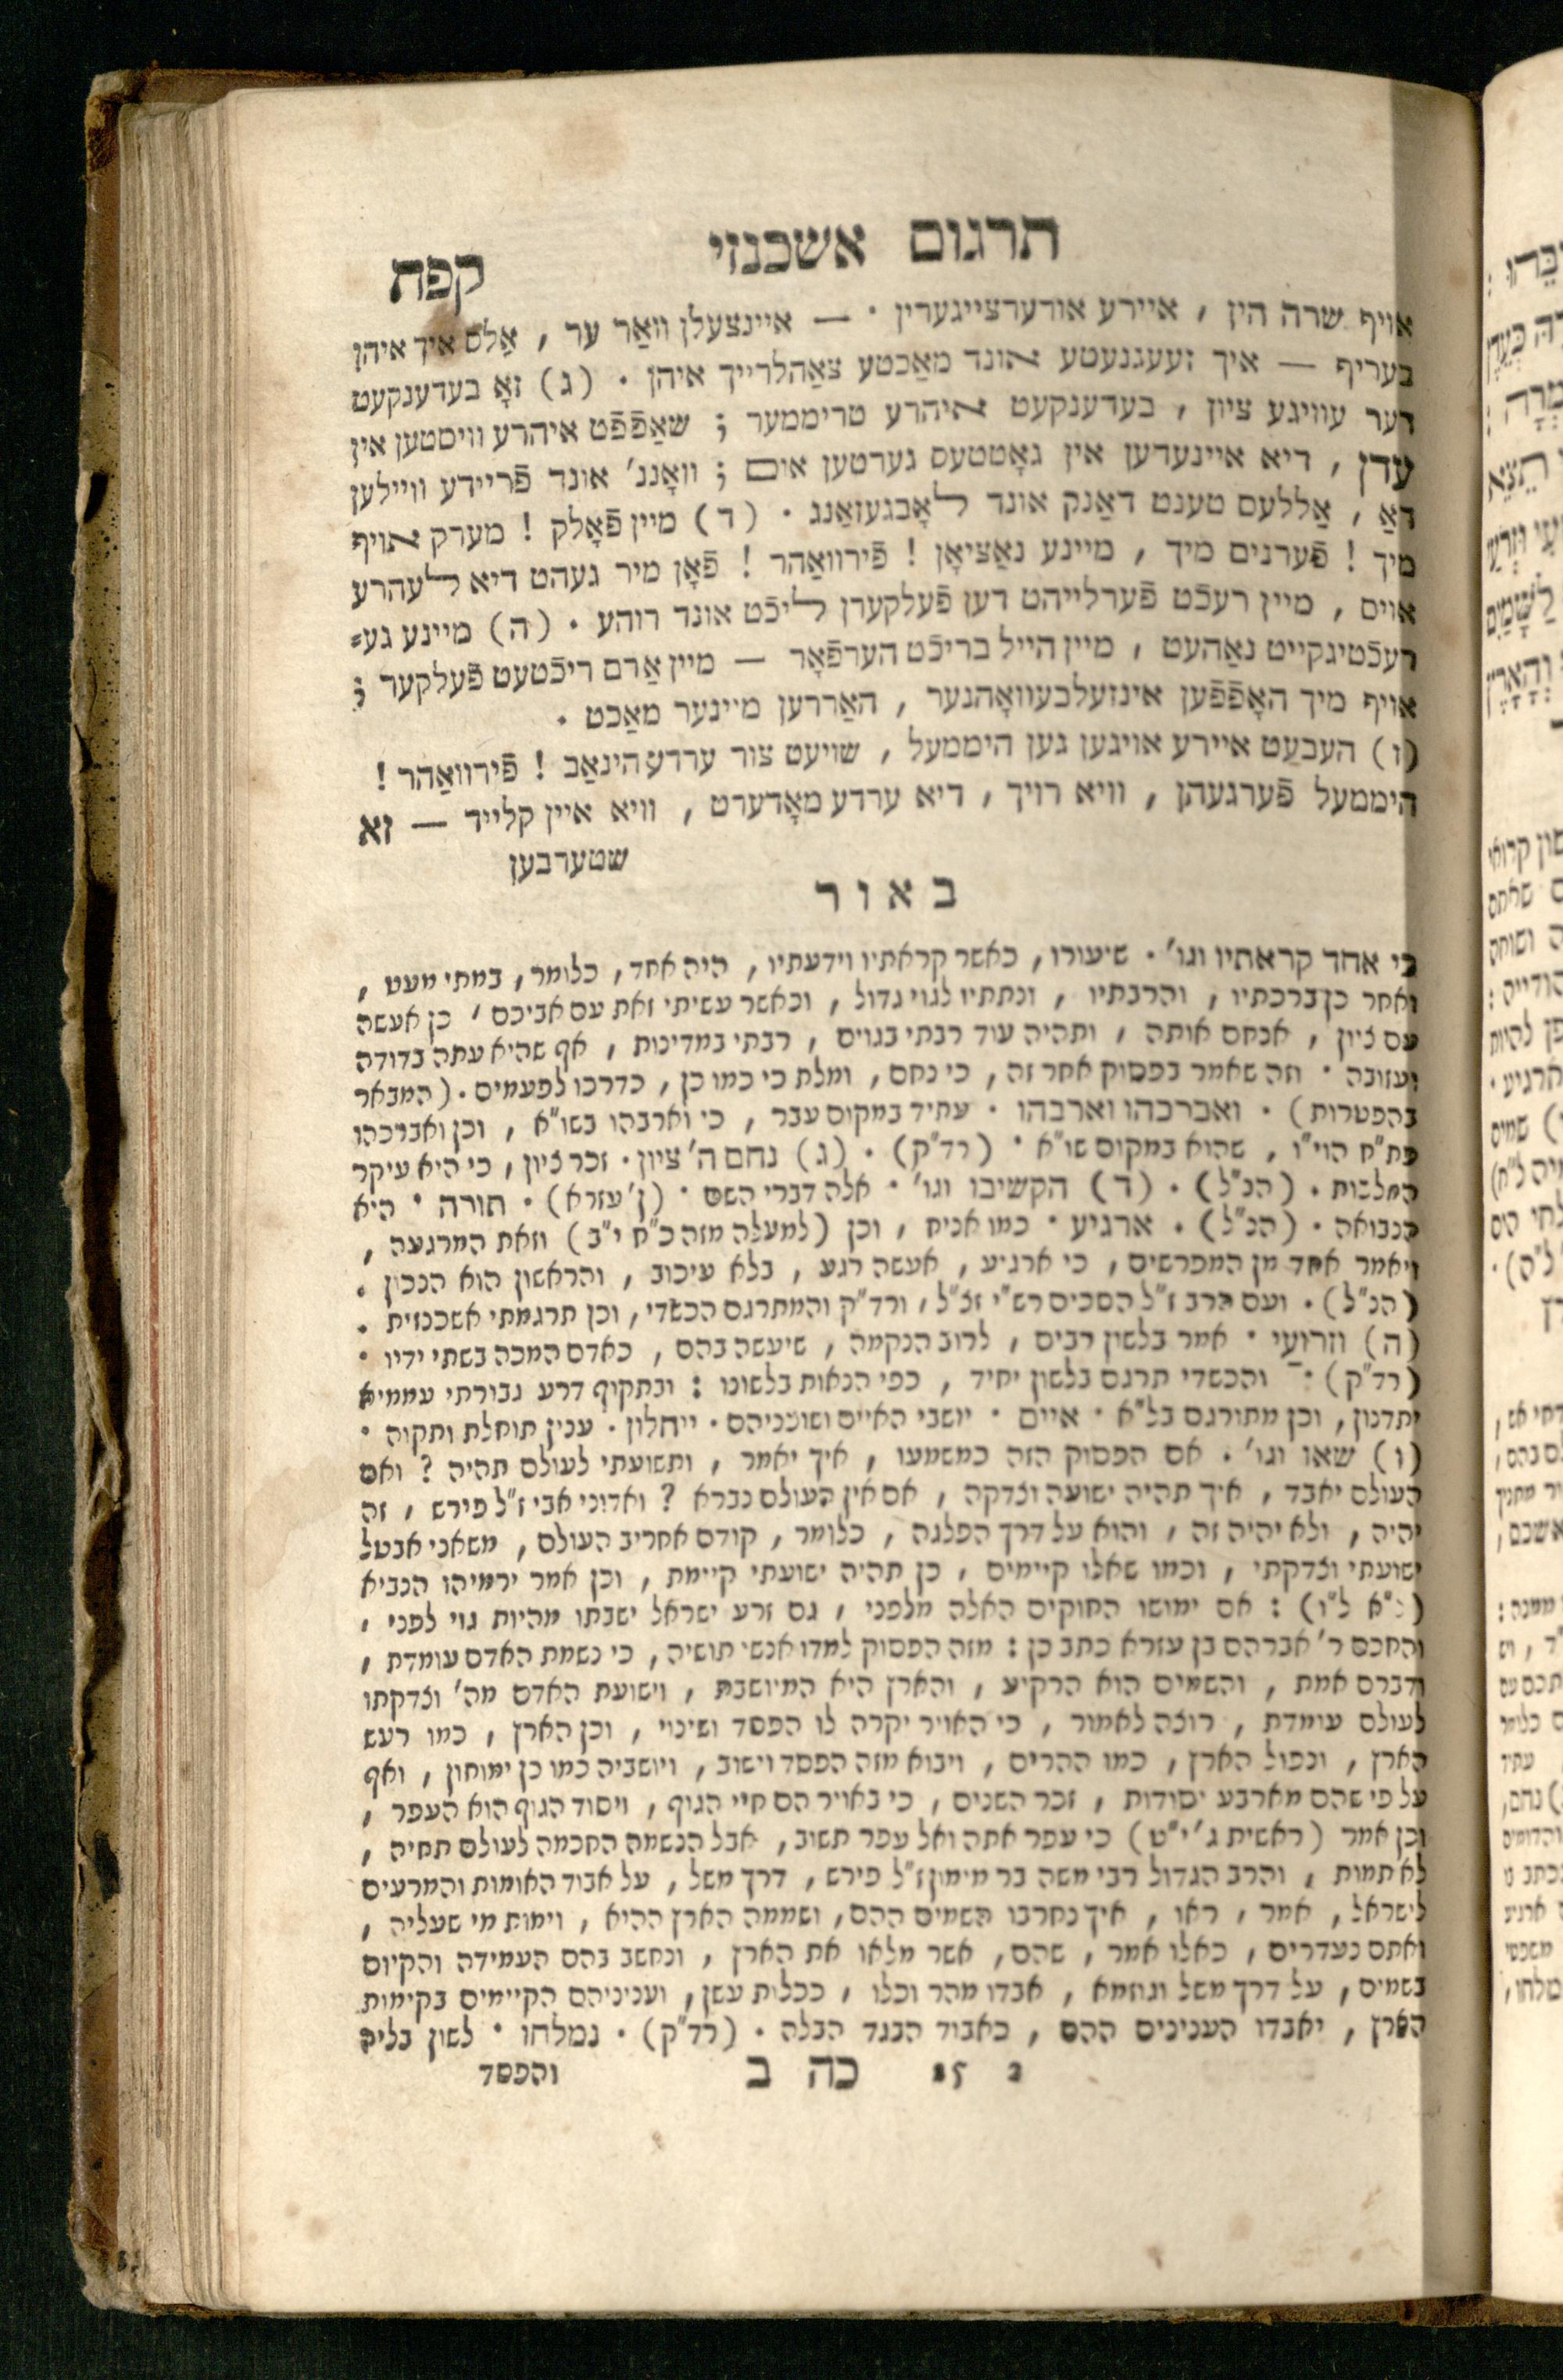 תרגום אשכנזי
קפח
אויף שרה הין , אייערע אורערצייגערין · — איינצעלן וואַר ער , אַלס איך איהן
בעריף — איך זעעגנעטע אונד מאַכטע צאַהלרייך איהן · (ג) זאָ בעדענקעט
דער עוויגע ציון , בעדענקעט איהרע טריממער ; שאַפֿפֿט איהרע וויסטען אין
עדן , דיא איינעדען אין גאָטטעס גערטען אום ; וואָננ' אונד פֿריידע וויילען
דאַ , אַללעס טענט דאַנק אונד לאָבגעזאַנג · (ד) מיין פֿאָלק ! מערק אויף
מיך ! פֿערנים מיך , מיינע נאַציאָן ! פֿירוואַהר ! פֿאָן מיר געהט דיא לעהרע
אויס , מיין רעכֿט פֿערלייהט דען פֿעלקערן ליכֿט אונד רוהע · (ה) מיינע גע=
רעכֿטיגקייט נאַהעט , מיין הייל בריכֿט הערפֿאָר — מיין אַרם ריכֿטעט פֿעלקער ;
אויף מיך האָפֿפֿען אינזעלבעוואָהנער , האַררען מיינער מאַכט ·
(ו) העבעט אייערע אויגען גען היממעל , שויעט צור ערדע הינאַב ! פֿירוואַהר !
היממעל פֿערגעהן , וויא רויך , דיא ערדע מאָדערט , וויא איין קלייד — זא
שטערבען
באור
כי אחד קראתיו וגו' · שיעורו , כאשר קראתיו וידעתיו , היה אחד , כלומר , במתי מעט ,
ואחר כן ברכתיו , והרבתיו , ונתתיו לגוי גדול , וכאשר עשיתי זאת עם אביכם , כן אעשה
עם ציון , אנחם אותה , ותהיה עוד רבתי בגוים , רבתי במדינות , אף שהיא עתה בדודה
ועזובה · וזה שאמר בפסוק אחר זה , כי נחם , ומלת כי כמו כן , כדרכו לפעמים · (המבאר
בהפטרות) · ואברכהו וארבהו · עתיד במקום עבר , כי וארבהו בשו"א , וכן ואברכהו
פת"ח הוי"ו , שהוא במקום שו"א · (רד"ק) · (ג) נחם ה' ציון · זכר ציון , כי היא עיקר
המלכות · (הנ"ל) · (ד) הקשיבו וגו' · אלה דברי השם · (ן' עזרא) · תורה · היא
הנבואה · (הנ"ל) · ארגיע · כמו אניח , וכן (למעלה מזה כ"ח י"ב) וזאת המרגעה ,
ויאמר אחד מן המפרשים , כי ארגיע , אעשה רגע , בלא עיכוב , והראשון הוא הנכון ·
(הנ"ל) · ועם הרב ז"ל הסכים רש"י זצ"ל , ורד"ק והמתרגם הכשדי , וכן תרגמתי אשכנזית ·
(ה) וזרועי · אמר בלשון רבים , לרוב הנקמה , שיעשה בהם , כאדם המכה בשתי ידיו ·
(רד"ק) · והכשדי תרגם בלשון יחיד , כפי הנאות בלשונו : ובתקוף דרע גבורתי עממיא
יתדנון , וכן מתורגם בל"א · איים · יושבי האיים ושוכניהם · ייחלון · ענין תוחלת ותקוה ·
(ו) שאו וגו' · אם הפסוק הזה כמשמעו , איך יאמר , ותשועתי לעולם תהיה ? ואם
העולם יאבד , איך תהיה ישועה וצדקה , אם אין העולם נברא ? ואדוני אבי ז"ל פירש , זה
יהיה , ולא יהיה זה , והוא על דרך הפלגה , כלומר , קודם אחריב העולם , משאני אבטל
ישועתי וצדקתי , וכמו שאלו קיימים , כן תהיה ישועתי קיימת , וכן אמר ירמיהו הנביא
(ל"א ל"ו) : אם ימושו החוקים האלה מלפני , גם זרע ישראל ישבתו מהיות גוי לפני ,
והחכם ר' אברהם בן עזרא כתב כן : מזה הפסוק למדו אנשי תושיה , כי נשמת האדם עומדת ,
ודברם אמת , והשמים הוא הרקיע , והארץ היא המיושבת , וישועת האדם מה' וצדקתו
לעולם עומדת , רוצה לאמור , כי האויר יקרה לו הפסד ושינוי , וכן הארץ , כמו רעש
הארץ , ונפול הארץ , כמו ההרים , ויבוא מזה הפסד וישוב , ויושביה כמו כן ימותון , ואף
על פי שהם מארבע יסודות , זכר השנים , כי באויר הם חיי הגוף , ויסוד הגוף הוא העפר ,
וכן אמר (ראשית ג' י"ט) כי עפר אתה ואל עפר תשוב , אבל הנשמה החכמה לעולם תחיה ,
לא תמות , והרב הגדול רבי משה בר מימון ז"ל פירש , דרך משל , על אבוד האומות והמרעים
לישראל , אמר , ראו , איך נחרבו השמים ההם , ושממה הארץ ההיא , וימות מי שעליה ,
ואתם נעדרים , כאלו אמר , שהם , אשר מלאו את הארץ , ונחשב בהם העמידה והקיום
בשמים , על דרך משל וגוזמא , אבדו מהר וכלו , ככלות עשן , ועניניהם הקיימים בקימות
הארץ , יאבדו הענינים ההם , כאבוד הבגד הבלה · (רד"ק) · נמלחו · לשון בליה
כה ב
והפסד